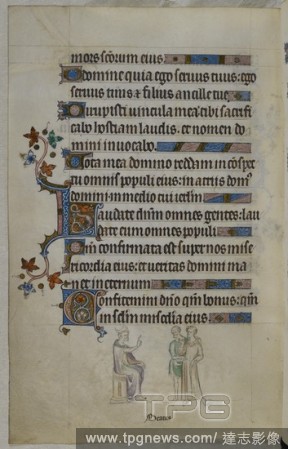 mors scõrum eius
O domine quia ego seruus tuus: ego
seruus tuus & filius ancille tue
Dirupisti uincula mea: tibi sacrifi
cabo hostiam laudis. et nomen do
mini inuocabo.
Uota mea domino reddam in cõspec
tu omnis populi eius: in atriis dom9
domini in medio tui ierlm
Laudate dñm omnes gentes: lau
date eum omnes populi
Qm confirmata est super nos mise
ricordia eius: et ueritas domini ma
net in eternum
Confitemini dño qm bonus: qm
in sclm mia eius.
TPG
www.tpgnews.com/ 達志影像